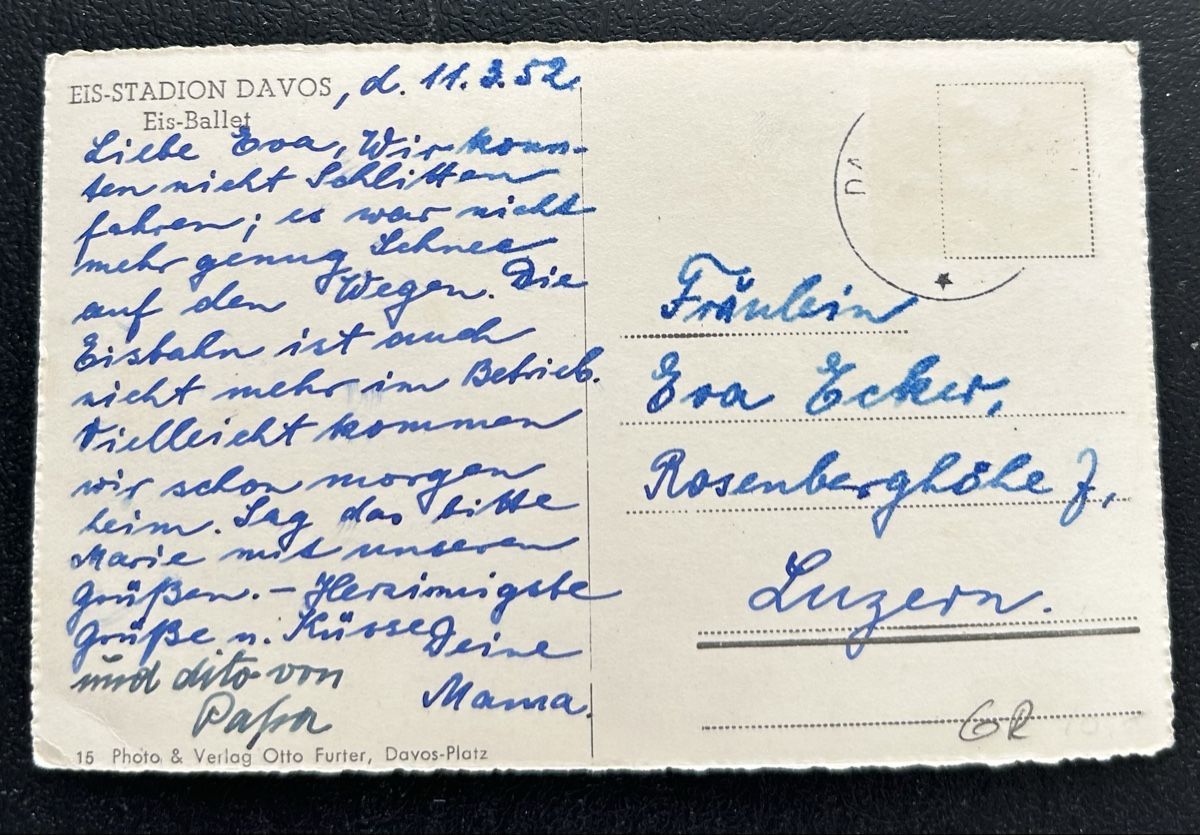 EIS-STADION DAVOS, d. 11.3.52
Eis-Ballet
Liebe Eva, Wir konn-
ten nicht Schlitten
fahren; es war nicht
mehr genug Schnee
auf den Wegen. Die
Eisbahn ist auch
nicht mehr im Betrieb.
Vielleicht kommen
wir schon morgen
heim. Sag das bitte
Marie mit unseren
Grüßen. – Herzinnigste
Grüße u. Küsse Deine
Mama.
und dito von
Papa
15 Photo & Verlag Otto Furter, Davos-Platz
DA
Fräulein
Eva Ecker,
Rosenberghöhe 7,
Luzern.
GR